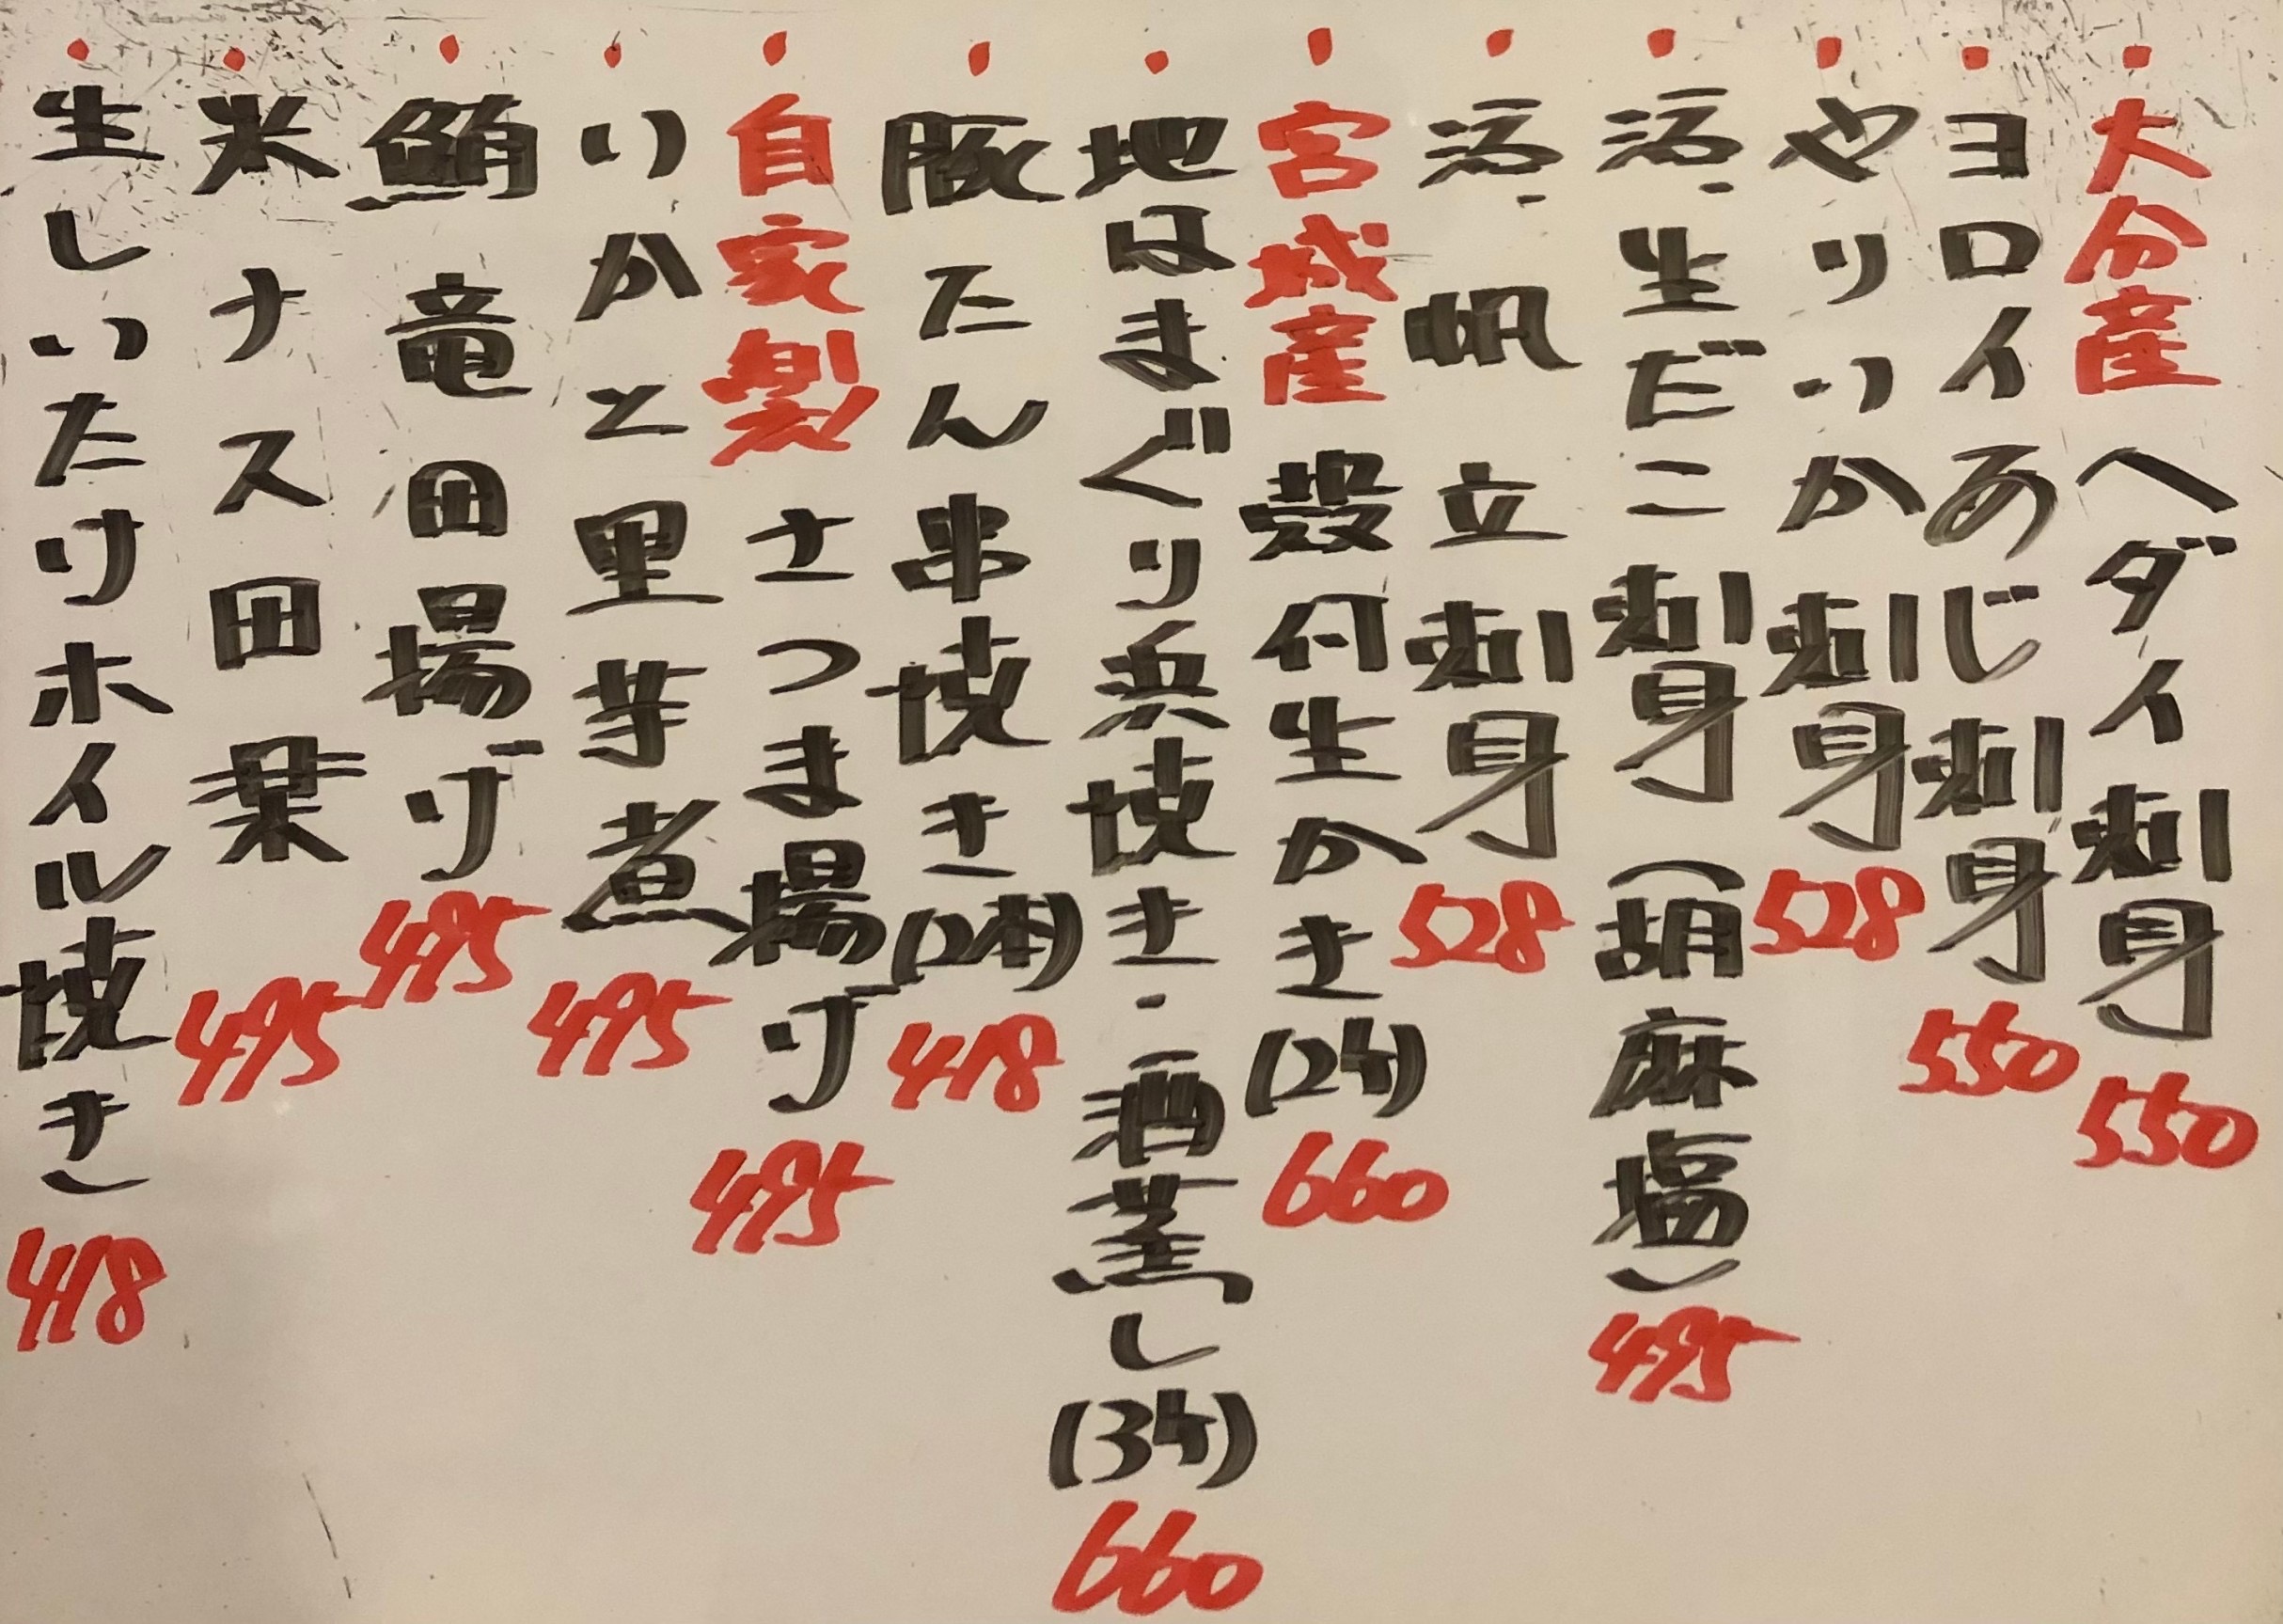 ・大分産 ヘダイ刺身 550
・ヨロイあじ刺身 550
・やりいか刺身 528
・活、生だこ刺身(胡麻塩) 495
・活、帆立刺身 528
・宮城産 殻付生かき(2ケ) 660
・地はまぐり浜焼き・酒蒸し(3ケ) 660
・豚たん串焼き(2本) 418
・自家製 さつま揚げ 495
・いかと里芋煮 495
・鮪竜田揚げ 495
・米ナス田楽 495
・生しいたけホイル焼き 418